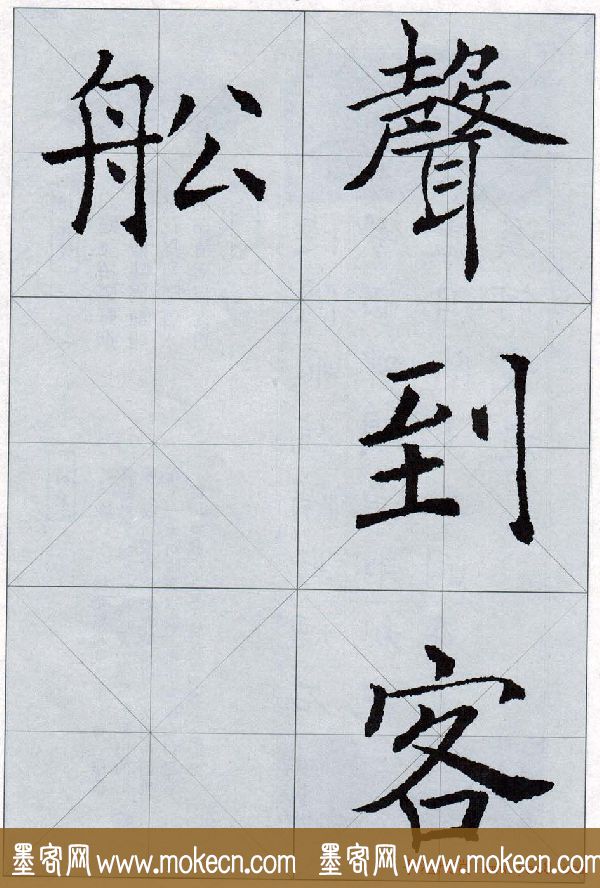 聲到客
舩
墨客网 www.mokecn.com 墨客网 www.mokecn.com